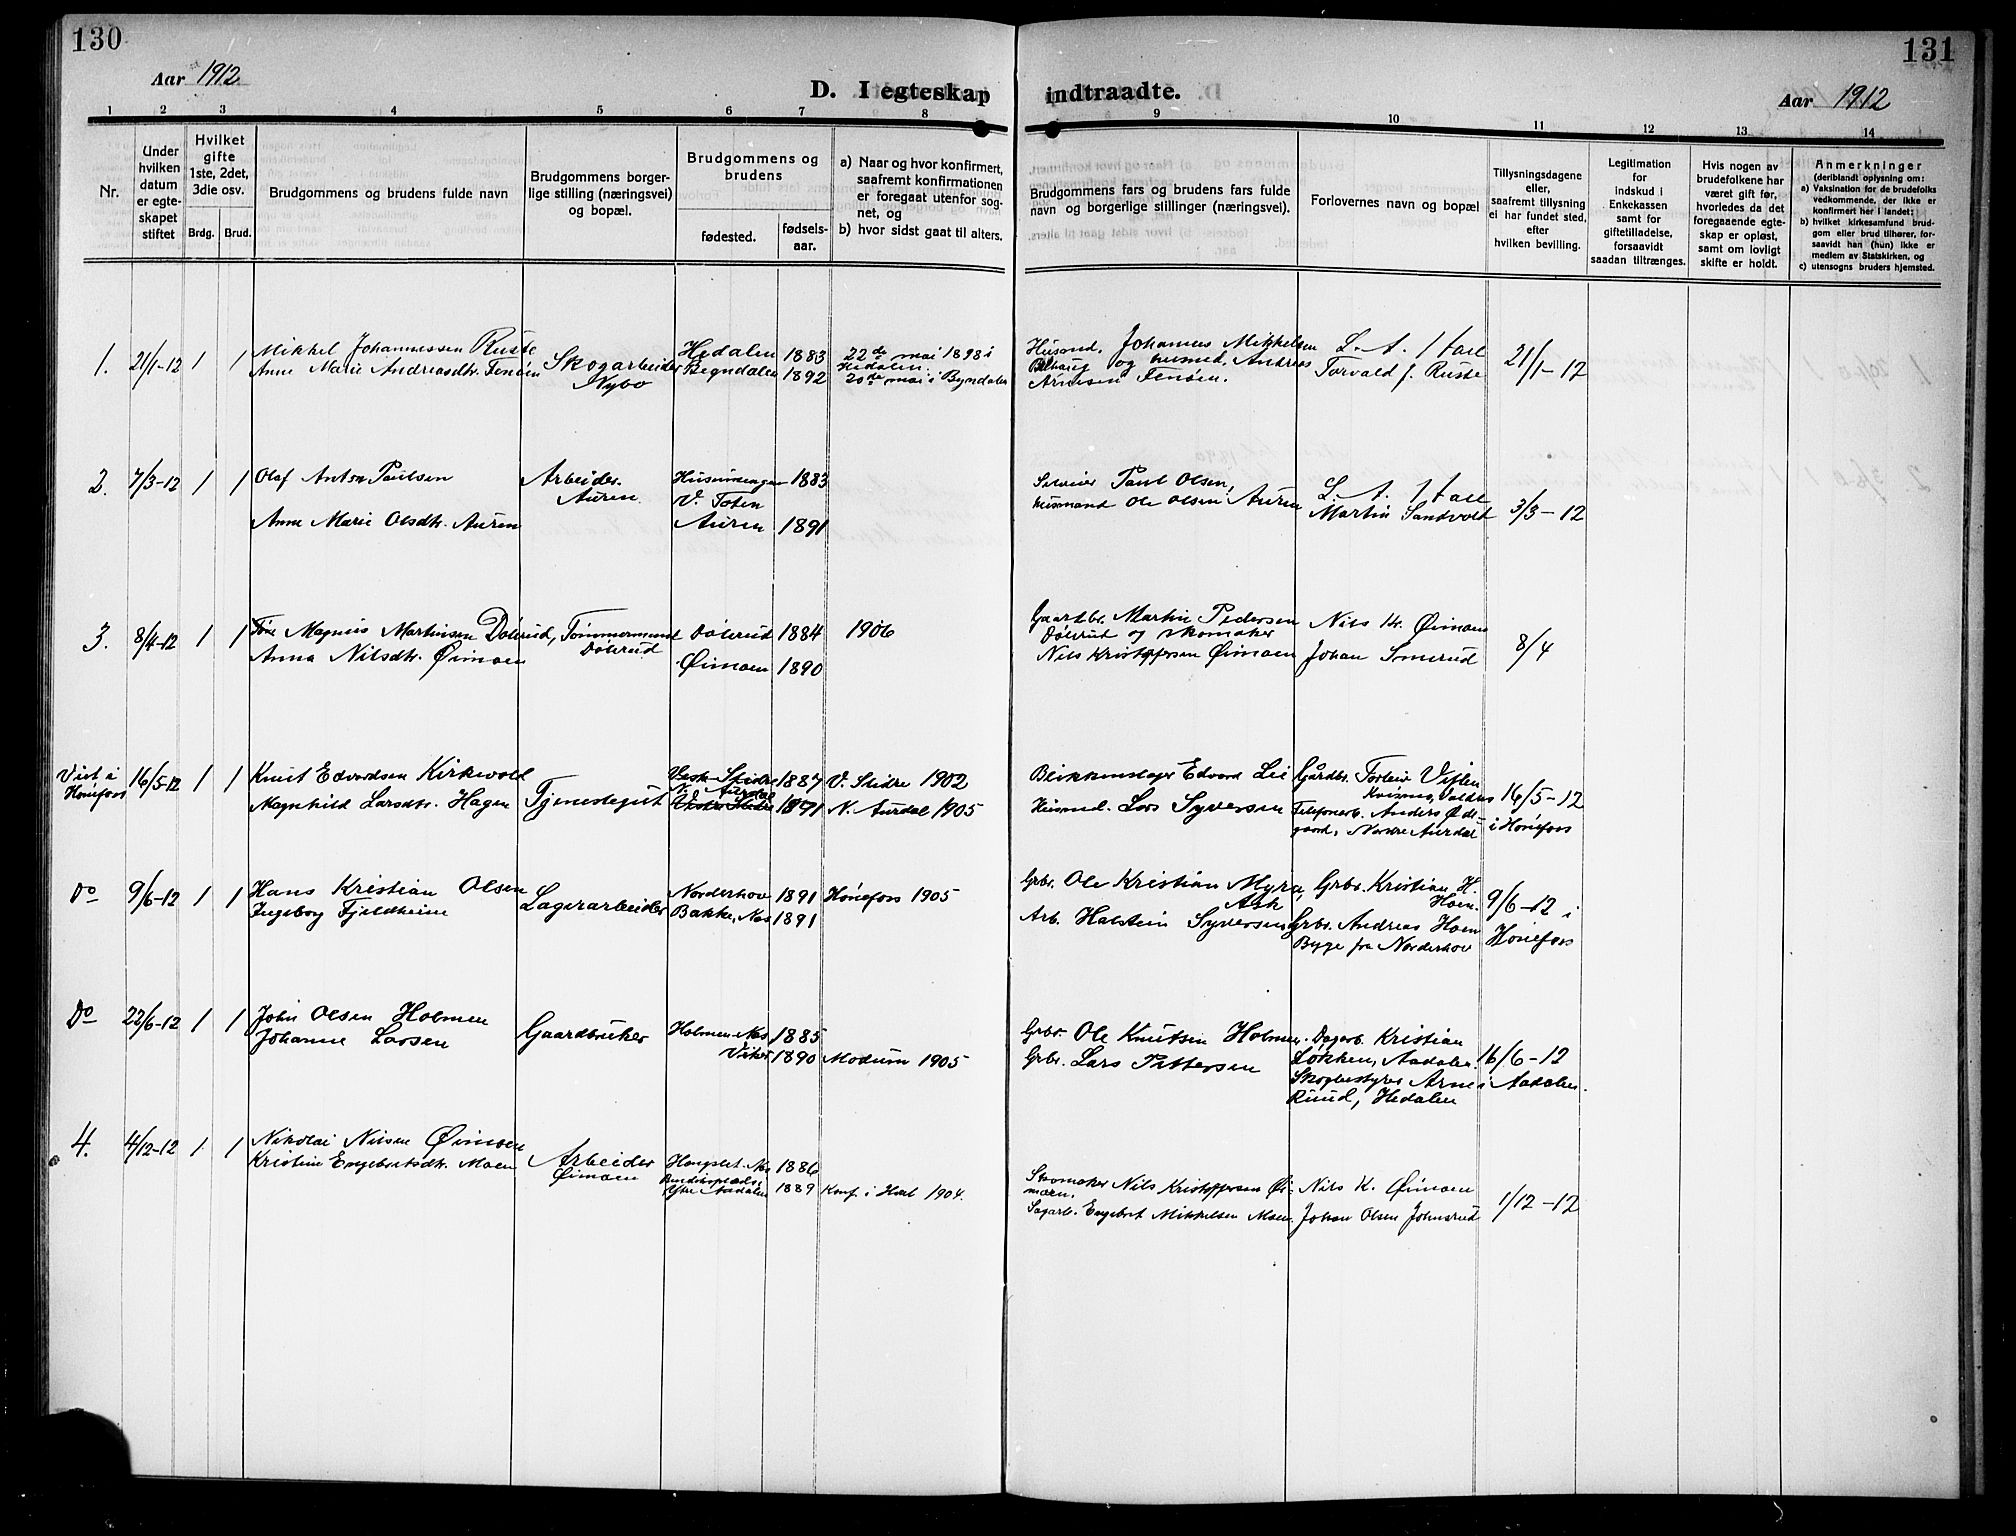 130
131
Aar 1912
D. I egteskap indtraadte.
Aar 1912
1 2 3 4 5 6 7 8 9 10 11 12 13 14
Nr.
Under
hvilken
datum
er egte-
skapet
stiftet
Hvilket
gifte
1ste, 2det,
3die osv.
Brdg. Brud.
Brudgommens og brudens fulde navn
Brudgommens borger-
lige stilling (næringsvei)
og bopæl.
Brudgommens og
brudens
fødested.
fødsels-
aar.
a) Naar og hvor konfirmert,
saafremt konfirmationen
er foregaat utenfor sog-
net, og
b) hvor sidst gaat til alters.
Brudgommens fars og brudens fars fulde
navn og borgerlige stillinger (næringsvei).
Forlovernes navn og bopæl
Tillysningsdagene
eller,
saafremt tillysning
ei har fundet sted,
efter
hvilken bevilling.
Legitimation
for
indskud i
Enkekassen
samt for
giftetilladelse,
forsaavidt
saadan tiltrænges.
Hvis nogen av
brudefolkene har
været gift før,
hvorledes da det
foregaaende egte-
skap er opløst,
samt om lovligt
skifte er holdt.
Anmerkninger
(deriblandt oplysning om:
a) Vaksination for de brudefolks
vedkommende, der ikke er
konfirmert her i landet:
b) hvilket kirkesamfund brud-
gom eller brud tilhører, for-
saavidt han (hun) ikke er
medlem av Statskirken, og
c) utensogns bruders hjemsted.
1. 21/1-12 1 1
Mikkel Johannessen Ruste
Anne Marie Andreasdtr. Fensen
Skogarbeider
Nybo
Hedalen 1883
Begndalen 1892
22de mai 1898 i
Hedalen.
20de mai i Byndalen
Husmd. Johannes Mikkelsen
og husmd. Andreas
Arnesen Fensen.
L. A. 1 fast
Torvald J. Ruste
21/1-12
2. 7/3-12 1 1
Olaf Anton Paulsen
Anne Marie Olsdtr. Auren
Arbeider.
Auren
V. Toten 1883
Auren 1891
Paul Olsen,
husmand Ole Olsen Auren
L. A. 1 fast
Martin Sandvold
3/3-12
3. 8/4-12 1 1
Tore Magnus Martinsen Dølerud,
Anna Nilsdtr. Øimoen
Tømmermand
Dølerud
Dølerud 1884
Øimoen 1890
1906
Gaardbr. Martin Pedersen
Dølerud og skomaker
Nils Kristoffersen Øimoen
Nils Kr. Øimoen
Johan Smerud
8/4
Viet i
Hønefoss
16/5-12 1 1
Knut Edvardsen Kirkevold
Magnhild Larsdtr. Hagen
Tjenestegut
Vestre Slidre 1887
N. Aurdal
Vestre Slidre 1891
V. Slidre 1902
N. Aurdal 1905
Blikkenslager Edvard Lie
Husmd. Lars Syversen
Gårdbr.
Valdres
Telefonarb. Anders Øde-
gaard, Nordre Aurdal
16/5-12
i Hønefoss
Do 9/6-12 1 1
Hans Kristian Olsen
Ingeborg Fjeldheim
Lagerarbeider
Norderhov 1891
Bakke, Nes 1891
Hønefoss 1905
Grbr. Ole Kristian Myra,
Ask
Arb. Halstein Syversen
Grbr. Kristian H.
Hoen.
Grbr. Andreas Hoen
Byge fra Norderhov
9/6-12 i
Hønefoss
Do 22/6-12 1 1
John Olsen Holmen
Johanne Larsen
Gaardbruker
Holmen Nes 1885
Viker 1890
Modum 1905
Grbr. Ole Knutsen Holmen.
Grbr. Lars Pettersen
Dagarb. Kristian
Løkken, Aadalen.
Skogbestyrer Arne
Ruud, Hedalen
16/6-12
i Aadalen.
4. 4/12-12 1 1
Nikolai Nilsen Øimoen
Kristine Engebretsdtr. Moen
Arbeider
Øimoen
Haugslet. Nes 1886
Ytre Aadalen 1889
Konf. i Hval 1904.
Skomaker Nils Kristoffersen Øi-
moen.
Sagarb. Engebret Mikkelsen Moen.
Nils K. Øimoen
Johan Olsen Johnsrud
1/12-12